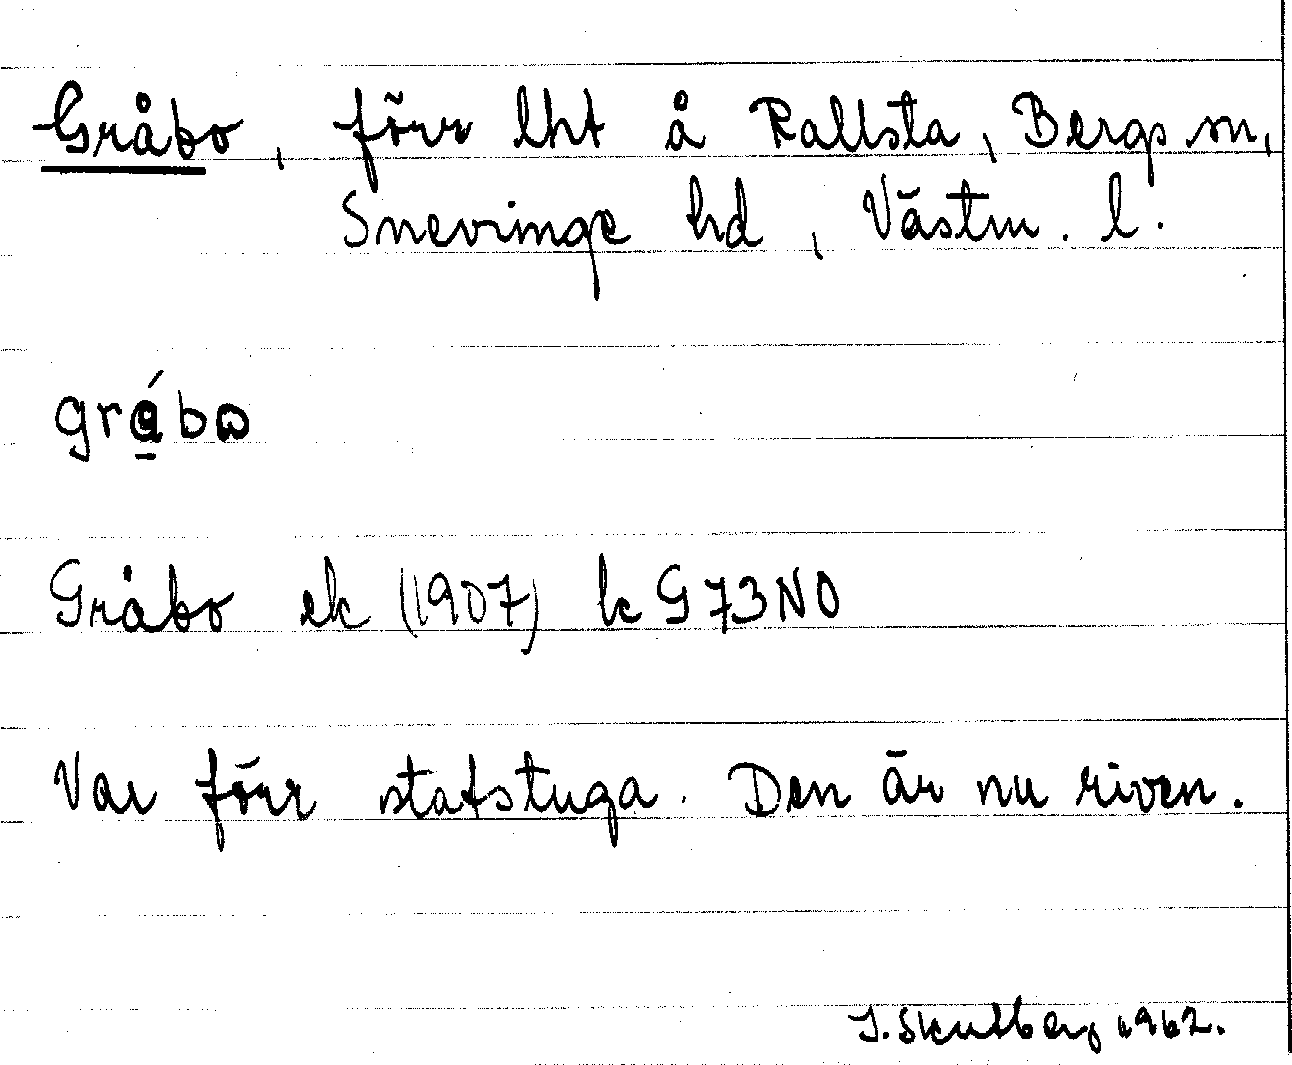 Gråbo, förr lht å Rallsta, Bergs sn,
Snevringe hd, Västm. l.
grǻ̱bω
Gråbo ek (1907) k G73NO
Var förr statstuga. Den är nu riven.
J. Skulberg 1962.